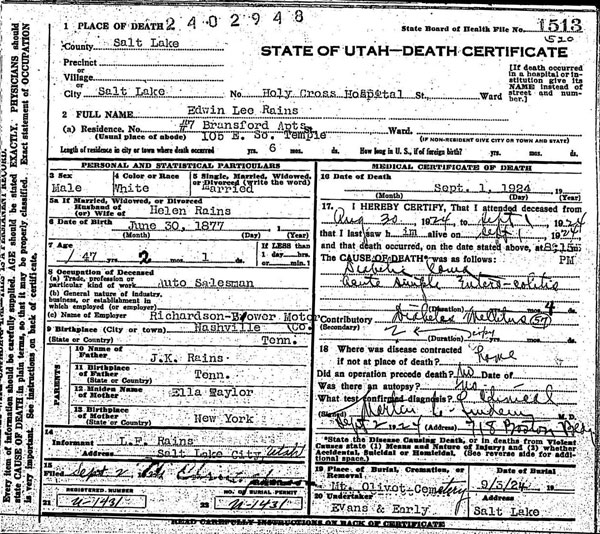 1 PLACE OF DEATH 2402948
State Board of Health File No. 1513
520
County Salt Lake
STATE OF UTAH—DEATH CERTIFICATE
Precinct
or
Village
or
City Salt Lake No. Holy Cross Hospital St., Ward
[If death occurred in a hospital or institution give its NAME instead of street and number.]
2 FULL NAME Edwin Lee Rains
(a) Residence. No. #7 Bransford Apts. 105 E. So. Temple St., Ward.
(Usual place of abode) (IF NON-RESIDENT GIVE CITY OR TOWN AND STATE)
Length of residence in city or town where death occurred yrs. 6 mos. ds. How long in U. S., if of foreign birth? yrs. mos. ds.
PERSONAL AND STATISTICAL PARTICULARS
3 Sex
Male
4 Color or Race
White
5 Single, Married, Widowed, or Divorced (write the word)
Married
5a If Married, Widowed, or Divorced
Husband of
(or) Wife of Helen Rains
6 Date of Birth June 30, 1877
(Month) (Day) (Year)
7 Age
47 2 1
If LESS than
1 day hrs.
or min.
8 Occupation of Deceased
(a) Trade, profession or particular kind of work Auto Salesman
(b) General nature of industry, business, or establishment in which employed (or employer)
(c) Name of Employer Richardson-Blower Motor Co.
9 Birthplace (City or town) Nashville
(State or Country) Tenn.
PARENTS
10 Name of Father J.K. Rains
11 Birthplace of Father Tenn.
(State or Country)
12 Maiden Name of Mother Ella Taylor
13 Birthplace of Mother New York
(State or Country)
14
Informant L.F. Rains
Address Salt Lake City, Utah
15
Filed Sept 2
REGISTERED NUMBER
21 U-1431
NO. OF BURIAL PERMIT
22 U-1431
MEDICAL CERTIFICATE OF DEATH
16 Date of Death
Sept. 1, 1924
(Month) (Day) (Year)
17. I HEREBY CERTIFY, That I attended deceased from
Aug 30, 1924, to Sept 1, 1924
that I last saw him alive on Sept 1, 1924
and that death occurred, on the date stated above, at 8:15 PM
The CAUSE OF DEATH* was as follows:
Diabetic Coma
Acute simple Entero-colitis
(Duration) 4
Contributory Diabetes Mellitus (57)
(Secondary)
2 (Duration)
18 Where was disease contracted
if not at place of death? Home
Did an operation precede death? No Date of
Was there an autopsy? No
What test confirmed diagnosis? Clinical
(Signed) M. D.
Sept 2 1924 718 Boston Bldg
*State the Disease Causing Death, or in deaths from Violent Causes state (1) Means and Nature of Injury; and (2) whether Accidental, Suicidal or Homicidal. (See reverse side for additional space.)
19 Place of Burial, Cremation, or Removal
Mt. Olivet Cemetery
Date of Burial
9/3/24
20 Undertaker
Evans & Early
Address
Salt Lake
READ CAREFULLY INSTRUCTIONS ON BACK OF CERTIFICATE